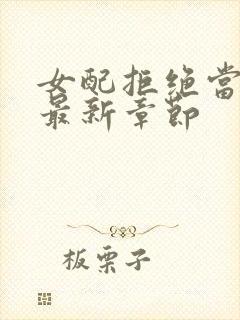 女配拒绝当
最新章节
板栗子